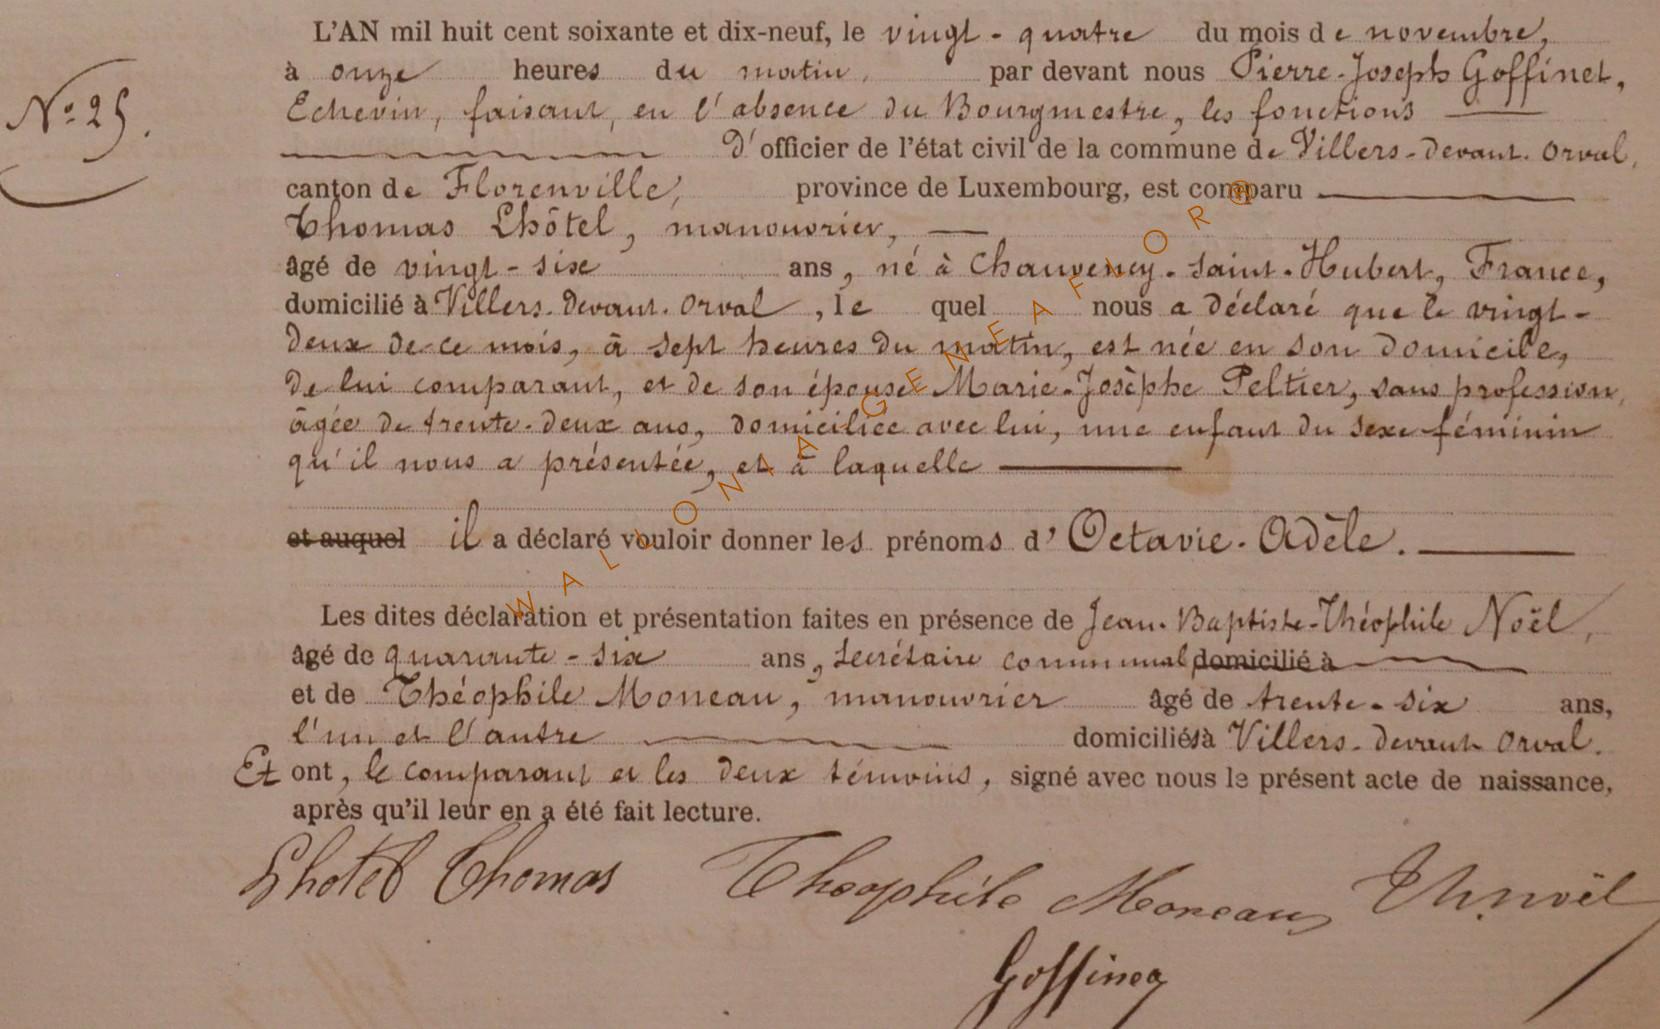 L'AN mil huit cent soixante et dix-neuf, le vingt-quatre du mois de novembre,
à onze heures du matin, par devant nous Pierre-Joseph Goffinet,
N° 25.
Echevin, faisant, en l'absence du Bourgmestre, les fonctions
D'officier de l'état civil de la commune de Villers-devant-Orval,
canton de Florenville, province de Luxembourg, est comparu
Thomas Lhôtel, manouvrier,
âgé de vingt-six ans, né à Chauvency-Saint-Hubert, France,
domicilié à Villers-devant-Orval, lequel nous a déclaré que le vingt-
deux de ce mois, à sept heures du matin, est née en son domicile,
de lui comparant, et de son épouse Marie-Josèphe Peltier, sans profession,
âgée de trente-deux ans, domiciliée avec lui, une enfant du sexe féminin
qu'il nous a présentée, et à laquelle
et auquel il a déclaré vouloir donner les prénoms d'Octavie-Adèle.
Les dites déclaration et présentation faites en présence de Jean-Baptiste-Théophile Noël,
âgé de quarante-six ans, secrétaire communal, domicilié à
et de Théophile Moneau, manouvrier âgé de trente-six ans,
l'un et l'autre domiciliés à Villers-devant-Orval.
Et ont, le comparant et les deux témoins, signé avec nous le présent acte de naissance,
après qu'il leur en a été fait lecture.
Lhotel Thomas Theophile Moneau Th. noël
Goffinet
WALLONIA GENEAFLOR®